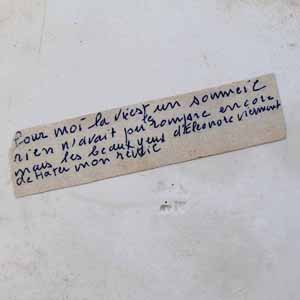 Pour moi la vie est un sommeil
rien n'avait pu le rompre encore
mais les beaux yeux d'Eleonore viennent
de hater mon reveil